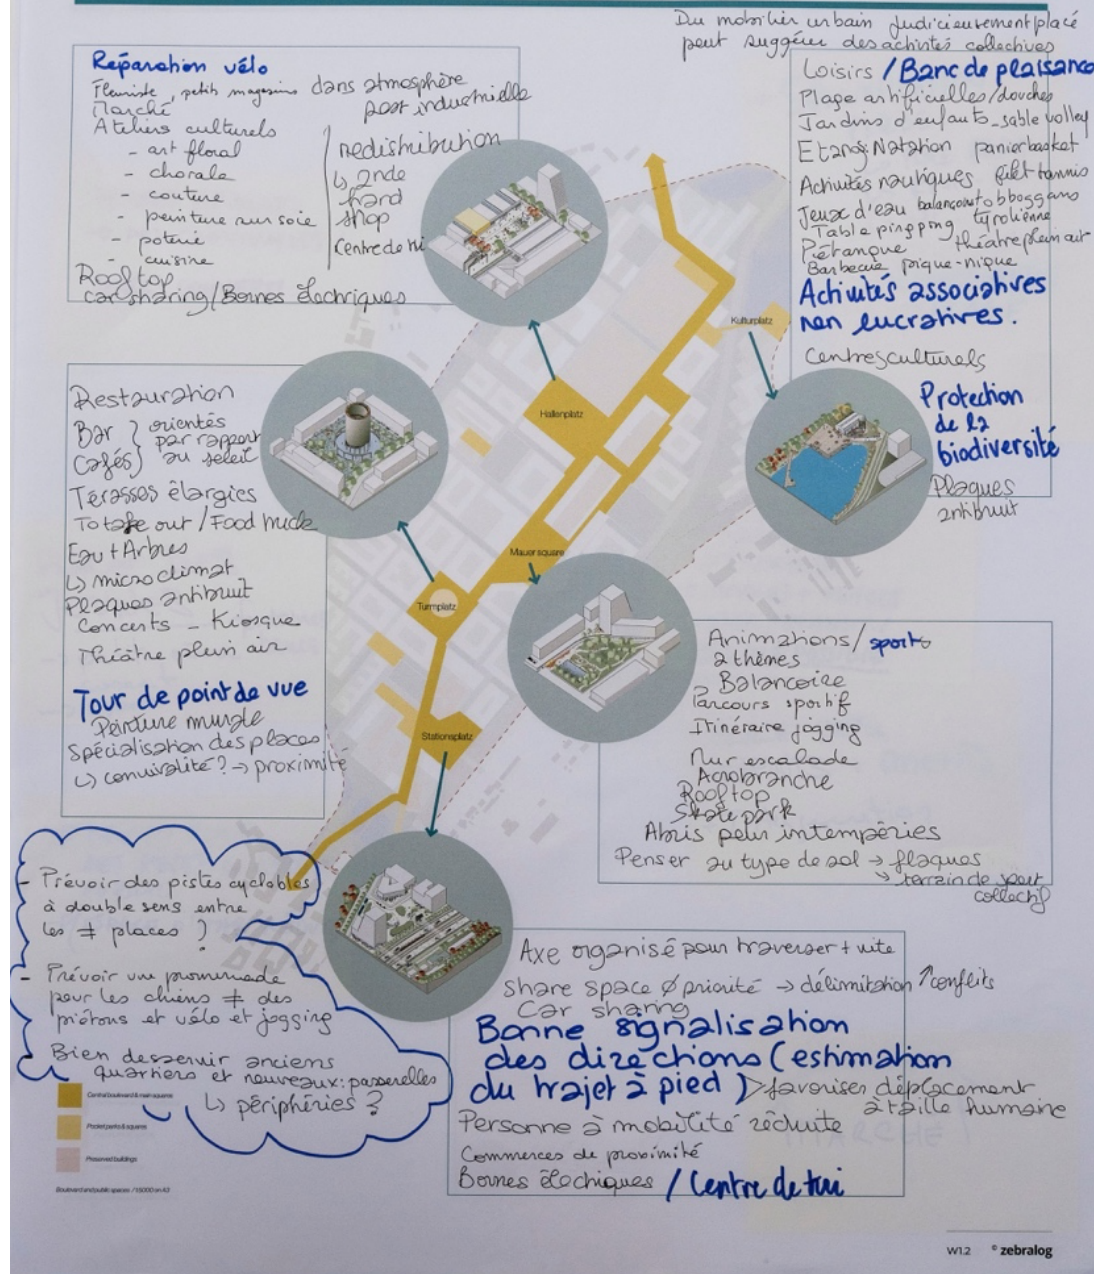 Du mobilier urbain judicieusement placé
peut suggérer des activités collectives
Réparation vélo
Fleuriste, petits magasins dans atmosphère
post industrielle
Marché
Ateliers culturels
- art floral
- chorale
- couture
- peinture sur soie
- poterie
- cuisine
redistribution
↳ 2nde
hard
shop
Centre de tri
Rooftop
car sharing/Bornes électriques
Loisirs / Banc de plaisance
Plage artificielles/douches
Jardins d'enfants_sable volley
Etang: Natation panier basket
Activités nautiques filet tennis
Jeux d'eau balançoire tobboggans
Table pingpong tyrolienne
Pétanque théatre plein air
Barbecue pique-nique
Activités associatives
non lucratives.
Centres culturels
Protection
de la
biodiversité
Plaques
antibruit
Kulturplatz
Hallenplatz
Mauer square
Turmplatz
Stationsplatz
Restauration
Bar } orientés
Cafés } par rapport
au soleil
Térasses élargies
To take out / Food truck
Eau + Arbres
↳ microclimat
Plaques antibruit
Concerts - Kiosque
Théâtre plein air
Tour de point de vue
Peinture murale
Spécialisation des places
↳ convivialité? → proximité
Animations/ sports
2 thèmes
Balancoire
Parcours sportif
Itinéraire jogging
Mur escalade
Acrobranche
Rooftop
Skate park
Abris pour intempéries
Penser au type de sol → flaques
↘ terrain de sport
collectif
- Prévoir des pistes cyclables
à double sens entre
les ≠ places ?
- Prévoir une promenade
pour les chiens ≠ des
piétons et vélo et jogging
- Bien desservir anciens
quartiers et nouveaux: passerelles
↳ périphéries ?
Axe organisé pour traverser + vite
Share space Ø priorité → délimitation ↗conflits
Car sharing
Bonne signalisation
des directions (estimation
du trajet à pied) > favoriser déplacement
à taille humaine
Personne à mobilité réduite
Commerces de proximité
Bornes électriques / Centre de tri
Central boulevard & main squares
Pocket parks & squares
Preserved buildings
Boulevard and public spaces / 1:5000 on A3
W1.2 © zebralog